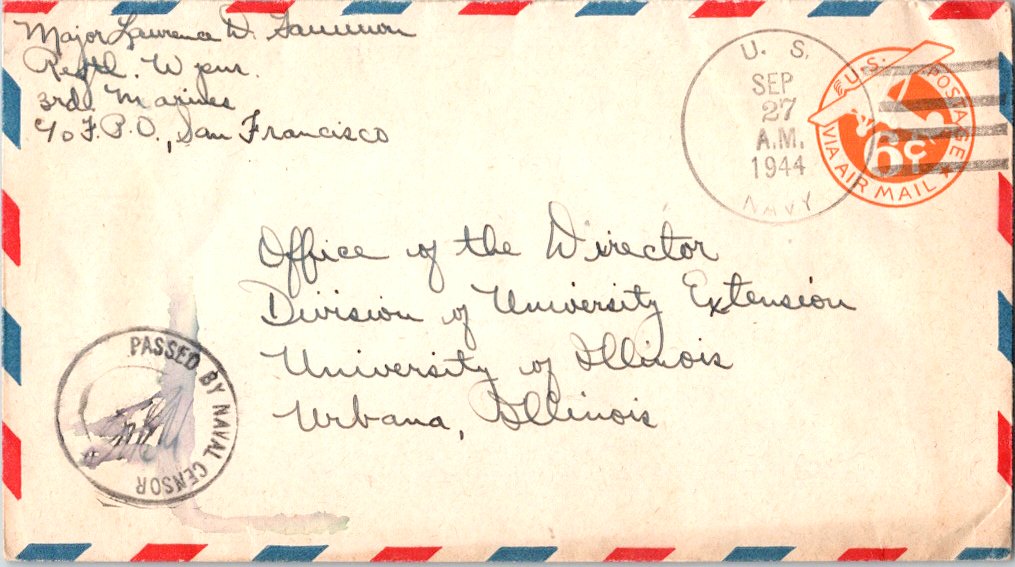 Major Lawrence D. Gammon
Regtl. Wpns.
3rd. Marines
c/o F.P.O., San Francisco
U. S.
SEP
27
A.M.
1944
NAVY
U.S. POSTAGE
6¢
VIA AIR MAIL
Office of the Director
Division of University Extension
University of Illinois
Urbana, Illinois
PASSED BY NAVAL CENSOR